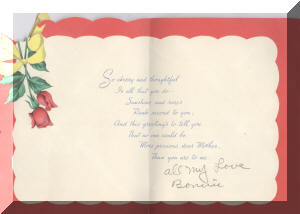 So cheery and thoughtful
In all that you do—
Sunshine and roses
Rank second to you;
And this greeting's to tell you
That no one could be
More precious, dear Mother,
Than you are to me
all my Love
Bonnie